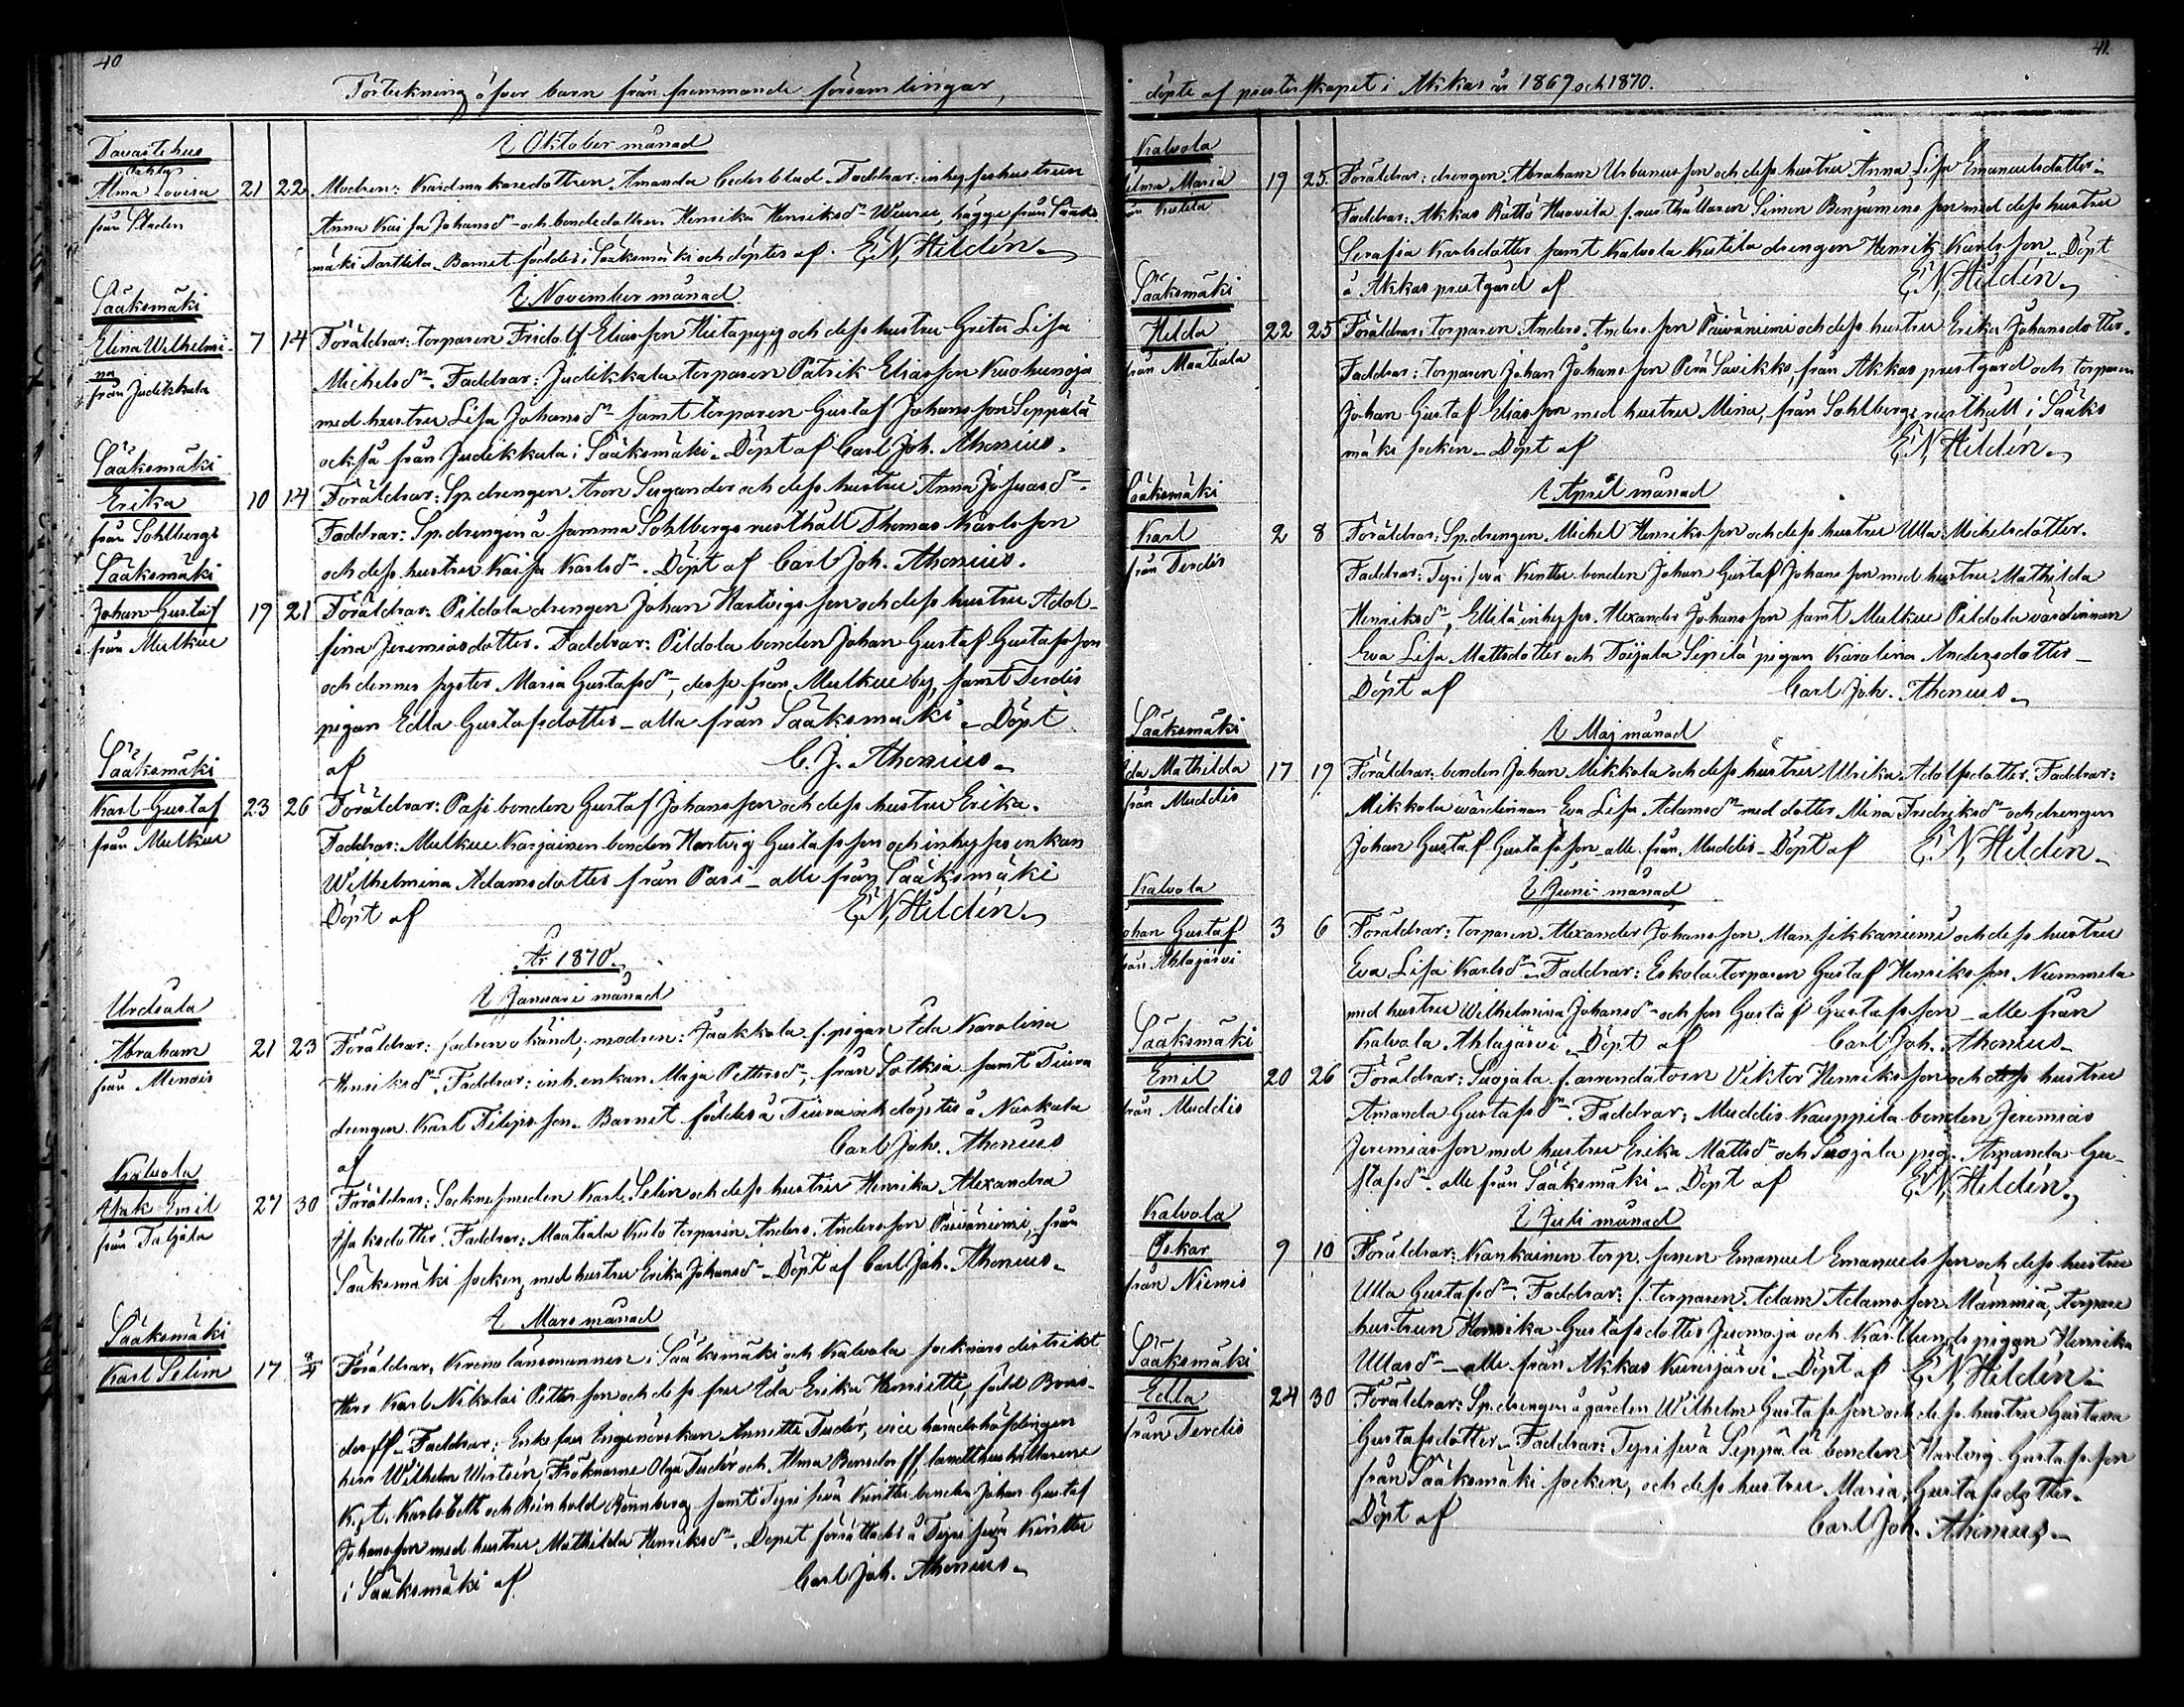 40
Förteckning öfver barn från främmande församlingar,
Tavastehus
I Oktober månad
Alma Lovisa 21 22 Modren: Kardmakaredottren Amanda Cederblad. Faddrar: inhyseshustrun
från Staden
Anna Kaisa Johansdr och bondedottren Henrika Henriksdr bägge från Sääks-
mäki Tarttila. Barnet föddes i Sääksmäki och döptes af E. N. Hildén.
I November månad
Sääksmäki
Elina Wilhelmi- 7 14 Föräldrar: torparen Fridolf Eliasson och dess hustru Greta Lisa
na
från Judikkala
Michelsdr. Faddrar: Judikkala torparen Patrik Eliasson Kuohunoja
med hustru Lisa Johansdr samt torparen Gustaf Johansson Seppälä
också från Judikkala i Sääksmäki. Döpt af Carl Joh. Ahonius.
Sääksmäki
Erika 10 14 Föräldrar: Sp.drengen Aron Sugander och dess hustru Anna Josuasdr.
från Sohlbergs
Faddrar: Sp.drengen å samma Sohlbergs rusthåll Thomas Karlsson
och dess hustru Kaisa Karlsdr. Döpt af Carl Joh. Ahonius.
Sääksmäki
Johan Gustaf 19 21 Föräldrar: Pildola drengen Johan Hartvigsson och dess hustru Adol-
från Mulkue
fina Jeremiasdotter. Faddrar: Pildola bonden Johan Gustaf Gustafsson
och dennes syster Maria Gustafsdr, desse från Mulkue by, samt Terdis
pigan Edla Gustafsdotter - alla från Sääksmäki. Döpt
af C. J. Ahonius.
Sääksmäki
Karl Gustaf 23 26 Föräldrar: Pasi bonden Gustaf Johansson och dess hustru Erika.
från Mulkue
Faddrar: Mulkue Karjainen bonden Hartvig Gustafsson och inhyses enkan
Wilhelmina Adamsdotter från Pasi - alle från Sääksmäki
Döpt af E. N. Hildén.
År 1870.
I Januari månad
Urdiala
Abraham 21 23 Föräldrar: fadren okänd; modren: Jaakkola f. pigan Ida Karolina
från Menois
Henriksdr. Faddrar: inh. enkan Maja Pettersdr, från Sotkia samt Tiura
drengen Karl Filipsson. Barnet föddes å Tiura och döptes å Naskala
af Carl Joh. Ahonius
Kalvola
Isak Emil 27 30 Föräldrar: Sockne smeden Karl Selin och dess hustru Henrika Alexandra
från Taljala
Isaksdotter. Faddrar: Maatiala torparen Anders Andersson Päiväniemi, från
Sääksmäki socken, med hustru Erika Johansdr. Döpt af Carl Joh. Ahonius.
I Mars månad
Sääksmäki
Karl Selim 17 Föräldrar, Krono länsmannen i Sääksmäki och Kalvola socknars distrikt
Herr Karl Nikolai Pettersson och dess fru Ida Erika Henriette, född Bons-
dorff. Faddrar: Enkefru Ingeniörskan Annette Tudér, vice häradshöfdingen
herr Wilhelm Fröknarne Olga Tudér och Alma Bonsdorff, landthushållarene
och Reinhold Rönnberg samt Tyrisevä bonden Johan Gustaf
Johansson med hustru Mathilda Henriksdr. Dopet förrättades å Tyrisevä
i Sääksmäki af Carl Joh. Ahonius.
41.
döpte af presterskapet i Akkas år 1869 och 1870.
Kalvola
Maria 19 25 Föräldrar: drengen Abraham Urbanusson och dess hustru Anna Lisa Emanuelsdotter.
Faddrar: Akkas Rättö Huovila f. rusthållaren Simon Benjaminsson med dess hustru
Serafia Karlsdotter samt Kalvola Kutila drengen Henrik Karlsson. Döpt
å Akkas prestgård af E. N. Hildén.
Sääksmäki
Hilda 22 25 Föräldrar: torparen Anders Andersson Päiväniemi och dess hustru Erika Johansdotter.
från Maatiala
Faddrar: torparen Johan Johansson Perä Savikko, från Akkas prestgård och torparen
Johan Gustaf Eliasson med hustru Mina, från Sohlbergs rusthåll i Sääks
mäki socken. Döpt af E. N. Hildén.
I April månad
Sääksmäki
Karl 2 8 Föräldrar: Sp.drengen Michel Henriksson och dess hustru Ulla Michelsdotter.
från Terdis
Faddrar: Tyrisevä bonden Johan Gustaf Johansson med hustru Mathilda
Henriksdr, Ellilä inhyses Alexander Johansson samt Mulkue Pildola värdinnan
Eva Lisa Mattsdotter och Toijala Sipilä pigan Karolina Andersdotter
Döpt af Carl Joh. Ahonius.
I Maj månad
Sääksmäki
Ida Mathilda 17 19 Föräldrar: bonden Johan Mikkola och dess hustru Ulrika Adolfsdotter. Faddrar:
från Muddis
Mikkola wärdinnan Eva Lisa Adamsdr med dotter Mina Fredriksdr och drengen
Johan Gustaf Gustafsson alle från Muddis. Döpt af E. N. Hildén.
I Juni månad
Kalvola
Johan Gustaf 3 6 Föräldrar: torparen Alexander Johansson Mansikkaniemi och dess hustru
från Ahlajärvi
Eva Lisa Karlsdr. Faddrar: Eskola torparen Gustaf Henriksson Nummela
med hustru Wilhelmina Johansdr och son Gustaf Gustafsson - alle från
Kalvola Ahlajärvi. Döpt af Carl Joh. Ahonius.
Sääksmäki
Emil 20 26 Föräldrar: Suojala f. arrendatorn Viktor Henriksson och dess hustru
från Muddis
Amanda Gustafsdr. Faddrar: Muddis Kauppila bonden Jeremias
Jeremiasson med hustru Erika Mattsdr och Suojala pig. Amanda Gu-
stafsdr. alle från Sääksmäki. Döpt af E. N. Hildén.
I Juli månad
Kalvola
Oskar 9 10 Föräldrar: Kankainen torp. sonen Emanuel Emanuelsson och dess hustru
från Niemis
Ulla Gustafsdr. Faddrar: f. torparen Adam Adamsson Mämmiä, torpare
hustrun Henrika Gustafsdotter Juomoja och Karlslunds pigan Henrika
Ullasdr - alle från Akkas Kurisjärvi. Döpt af E. N. Hildén.
Sääksmäki
Edla 24 30 Föräldrar: Sp.drengen å gården Wilhelm Gustafsson och dess hustru Gustava
från Terdis
Gustafsdotter. Faddrar: Tyrisevä Seppälä bonden Hartvig Gustafsson
från Sääksmäki socken, och dess hustru Maria Gustafsdotter.
Döpt af Carl Joh. Ahonius.